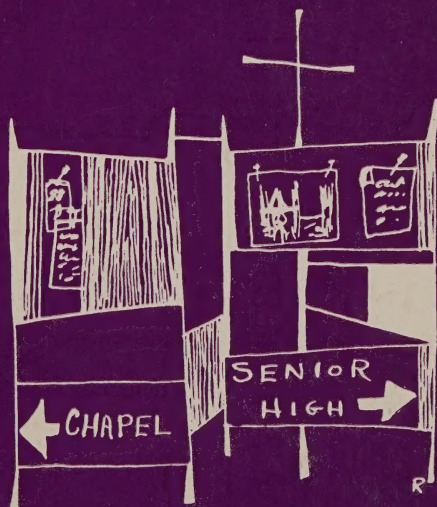 CHAPEL
SENIOR
HIGH
R